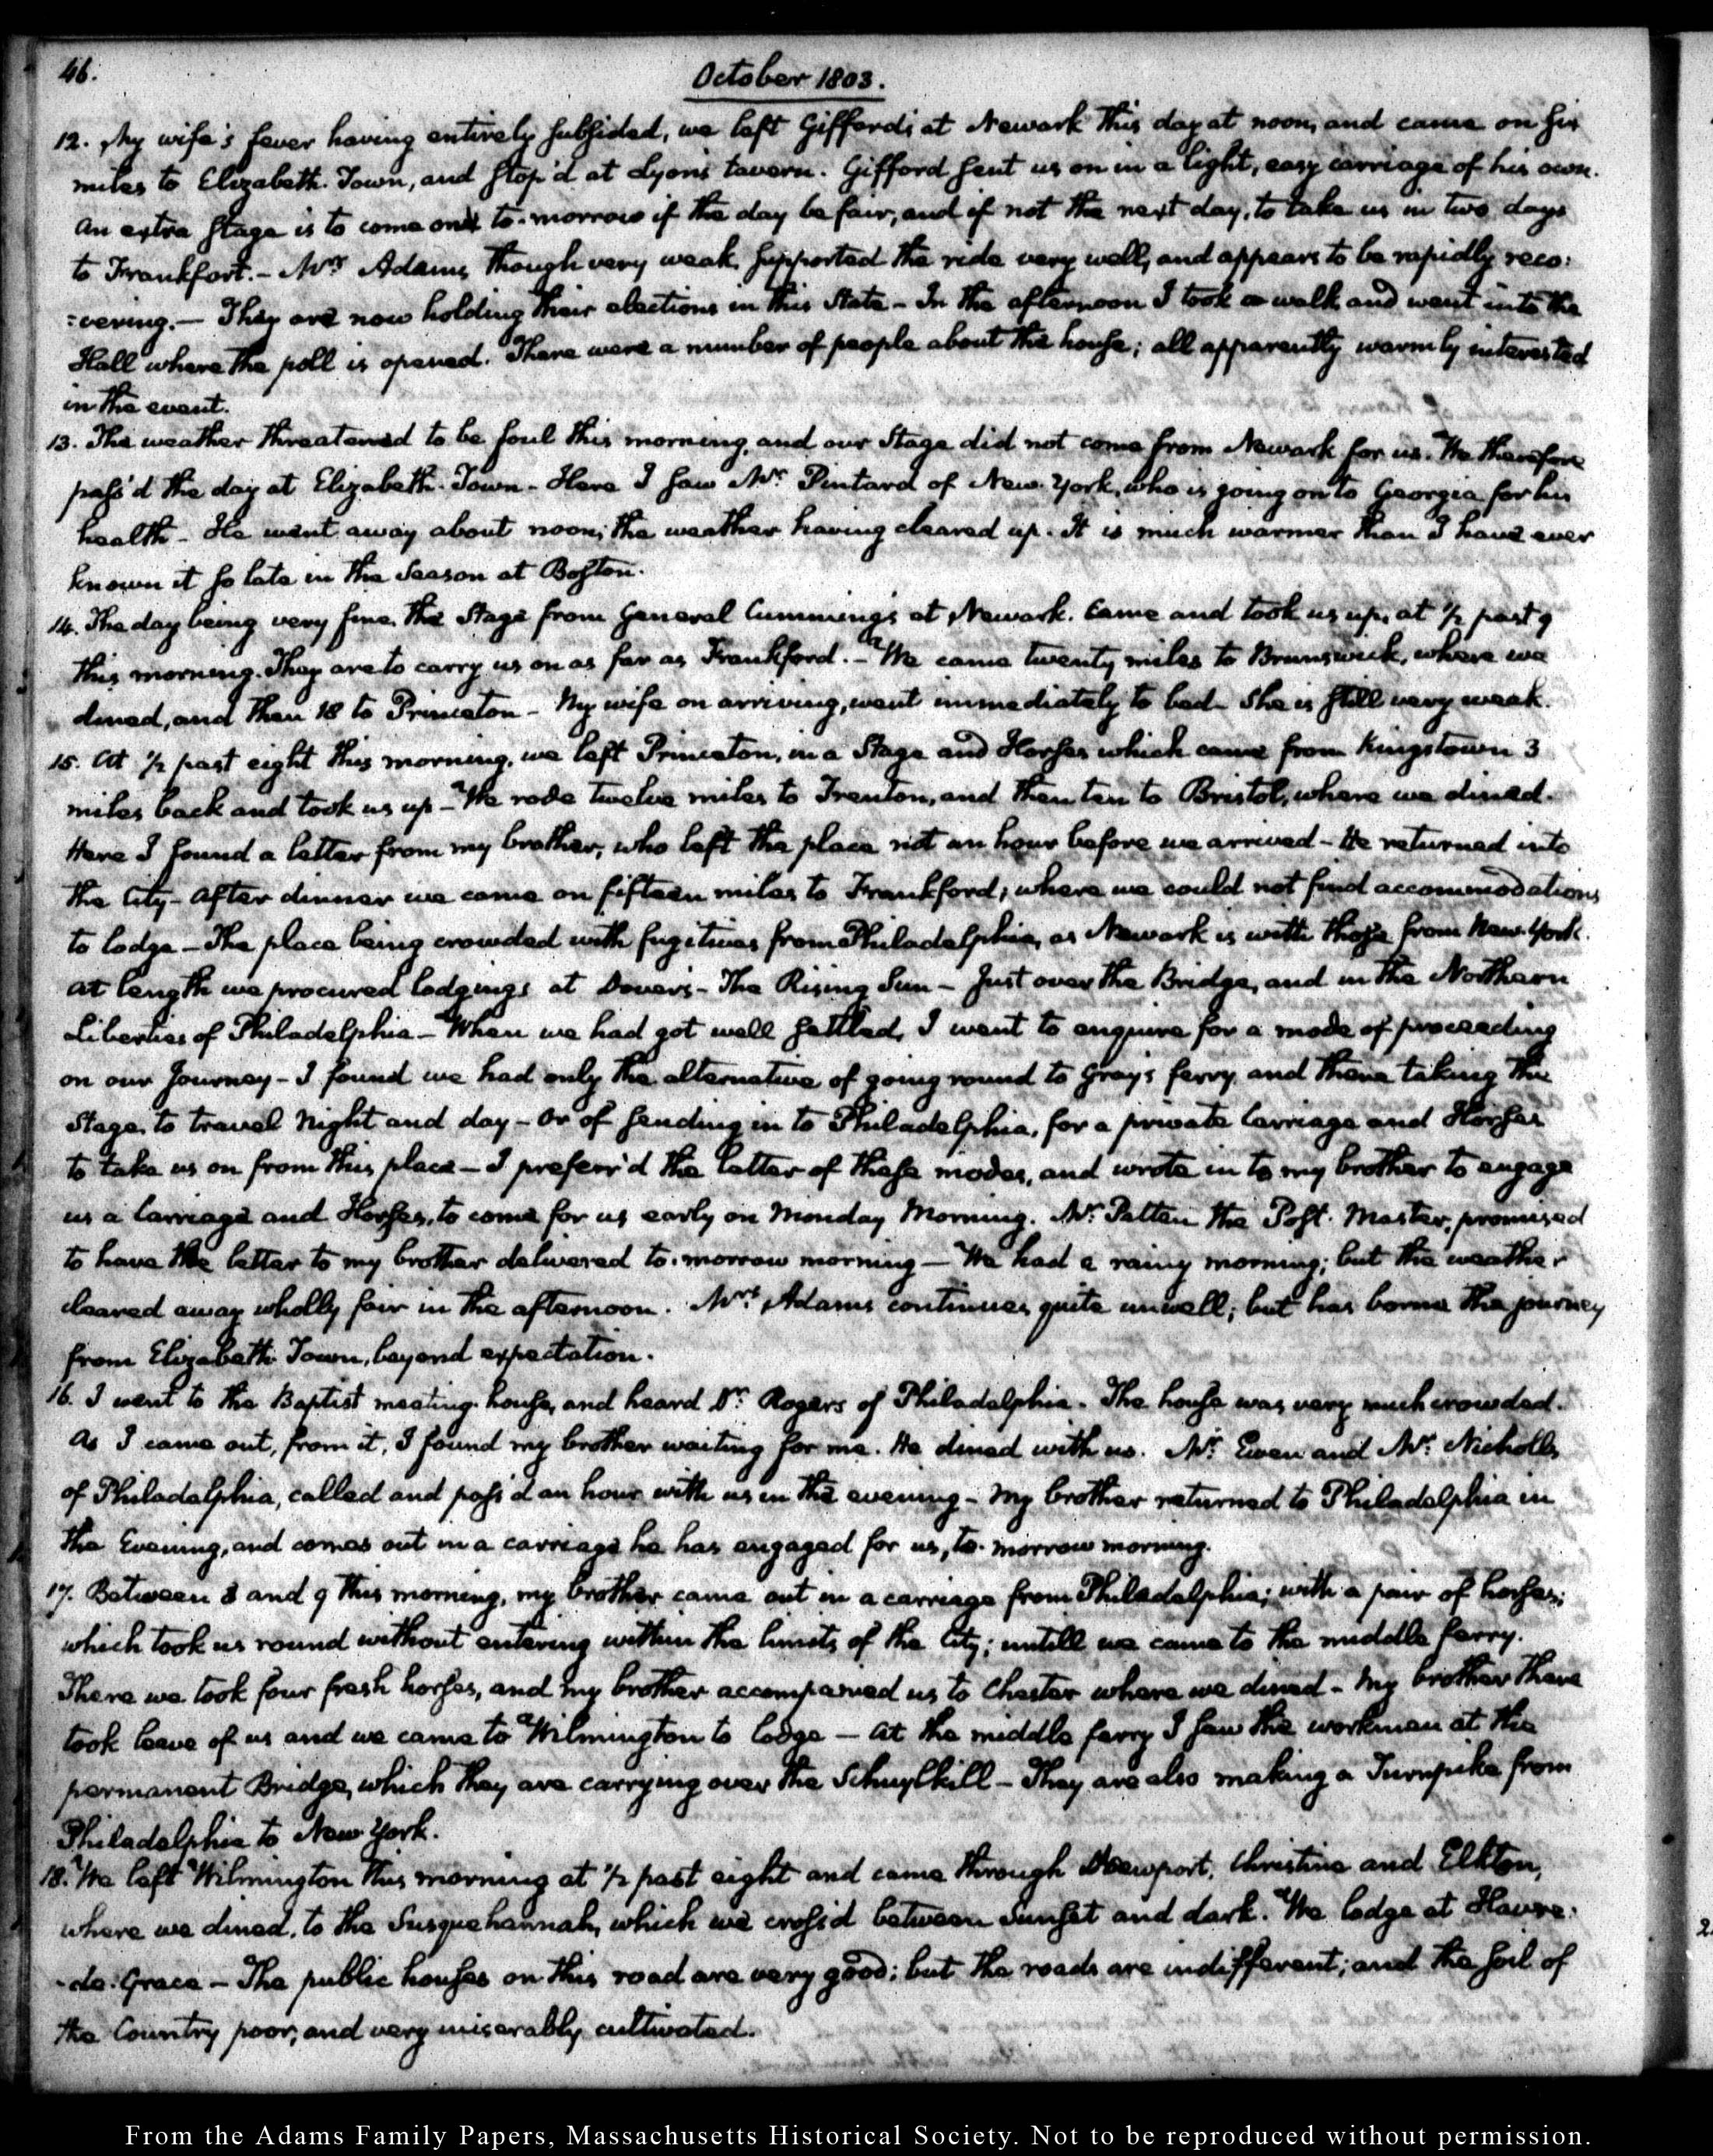 46.
October 1803.
12. My wife's fever having entirely subsided, we left Gifford's at Newark this day at noon, and came on six
miles to Elizabeth-Town, and stop'd at Lyons tavern. Gifford sent us on in a light, easy carriage of his own.
An extra stage is to come on to-morrow if the day be fair, and if not the next day, to take us in two days
to Frankfort.- Mrs Adams, though very weak, supported the ride very well, and appears to be rapidly reco:
:vering.— They are now holding their elections in this State - In the afternoon I took a walk and went into the
Hall where the poll is opened. There were a number of people about the house; all apparently warmly interested
in the event.
13. The weather threatened to be foul this morning, and our Stage did not come from Newark for us. We therefore
pass'd the day at Elizabeth-Town - Here I saw Mr Pintard of New-York, who is going on to Georgia for his
health - He went away about noon; the weather having cleared up. It is much warmer than I have ever
known it so late in the Season at Boston.
14. The day being very fine, the Stage from General Cumming's at Newark. came and took us up, at ½ past 9
this morning. They are to carry us on as far as Frankford.- We came twenty miles to Brunswick, where we
dined, and then 18 to Princeton - My wife on arriving, went immediately to bed - She is still very weak.
15. At ½ past eight this morning, we left Princeton, in a Stage and Horses which came from Kingstown 3
miles back and took us up - We rode twelve miles to Trenton, and then ten to Bristol, where we dined.
Here I found a letter from my brother, who left the place not an hour before we arrived - He returned into
the City - After dinner we came on fifteen miles to Frankford; where we could not find accommodations
to lodge - The place being crowded with fugitives from Philadelphia, as Newark is with those from New-York.
At length we procured lodgings at Dover's - The Rising Sun - Just over the Bridge, and in the Northern
Liberties of Philadelphia - When we had got well settled, I went to enquire for a mode of proceeding
on our Journey - I found we had only the alternative of going round to Gray's ferry and there taking the
Stage, to travel Night and day - Or of sending in to Philadelphia, for a private Carriage and Horses
to take us on from this place - I preferr'd the latter of these modes, and wrote in to my brother to engage
us a Carriage and Horses, to come for us early on Monday Morning. Mr Patten the Post-Master, promised
to have the letter to my brother delivered to-morrow morning — We had a rainy morning; but the weather
cleared away wholly fair in the afternoon. Mrs Adams continues quite unwell; but has borne the journey
from Elizabeth-Town, beyond expectation.
16. I went to the Baptist meeting-house, and heard Dr Rogers of Philadelphia. The house was very much crowded.
As I came out, from it, I found my brother waiting for me. He dined with us. Mr Ewen and Mr Nicholls
of Philadelphia, called and pass'd an hour with us in the evening - My brother returned to Philadelphia in
the Evening, and comes out in a carriage he has engaged for us, to-morrow morning.
17. Between 8 and 9 this morning, my brother came out in a carriage from Philadelphia; with a pair of horses;
which took us round without entering within the limits of the City; untill we came to the middle ferry.
There we took four fresh horses, and my brother accompanied us to Chester where we dined - My brother there
took leave of us and we came to Wilmington to lodge — At the middle ferry I saw the workmen at the
permanent Bridge, which they are carrying over the Schuylkill - They are also making a Turnpike from
Philadelphia to New-York.
18. We left Wilmington this morning at ½ past eight and came through Newport, Christine and Elkton,
where we dined, to the Susquehannah, which we cross'd between Sunset and dark. We lodge at Havre-
-de-Grace - The public houses on this road are very good; but the roads are indifferent; and the soil of
the Country poor, and very miserably cultivated.
2
From the Adams Family Papers, Massachusetts Historical Society. Not to be reproduced without permission.